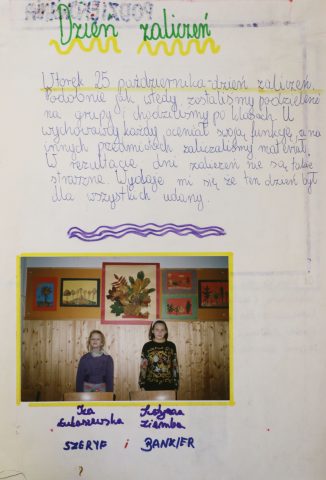 Dzień zaliczeń
Wtorek 25 października-dzień zaliczeń.
Podobnie jak wtedy zostaliśmy podzieleni
na grupy i chodziliśmy po klasach. U
wychowawcy każdy oceniał swoją funkcję, a na
innych przedmiotach zaliczaliśmy materiał.
W rezultacie dni zaliczeń nie są takie
straszne. Wydaje mi się że ten dzień był
dla wszystkich udany.
Iza
Łukaszewska
Ziemba
SZERYF i BANKIER